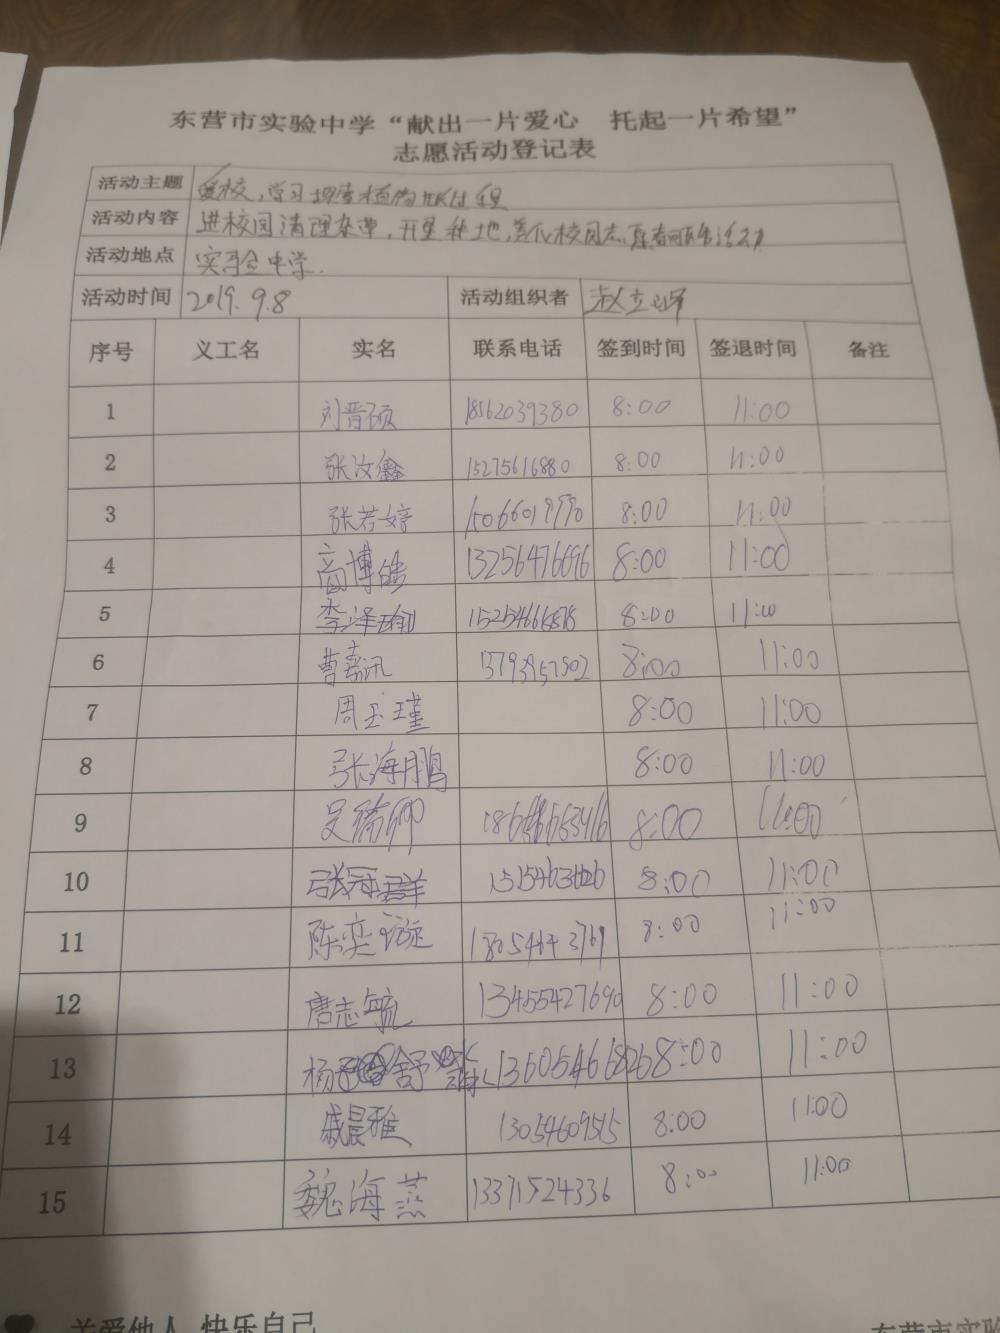 东营市实验中学“献出一片爱心 托起一片希望”
志愿活动登记表
活动主题 爱校,学习 植物 过程
活动内容 进校园清理杂草,开垦种地, 校园志愿 活动
活动地点 实验中学.
活动时间 2019.9.8 活动组织者 赵立
序号 义工名 实名 联系电话 签到时间 签退时间 备注
1 刘晋硕 18562039380 8:00 11:00
2 张汝鑫 15275616880 8:00 11:00
3 张若婷 8:00 11:00
4 商博皓 13256476696 8:00 11:00
5 李泽瑜 8:00 11:00
6 曹嘉讯 8:00 11:00
7 周玉瑾 8:00 11:00
8 张海鹏 8:00 11:00
9 吴 8:00 11:00
10 张 群 8:00 11:00
11 陈奕 8:00 11:00
12 唐志毓 13455427690 8:00 11:00
13 杨舒 13605468268 8:00 11:00
14 戚晨雅 13054609515 8:00 11:00
15 魏海燕 13371524336 8:00 11:00
关爱他人 快乐自己
东营市实验